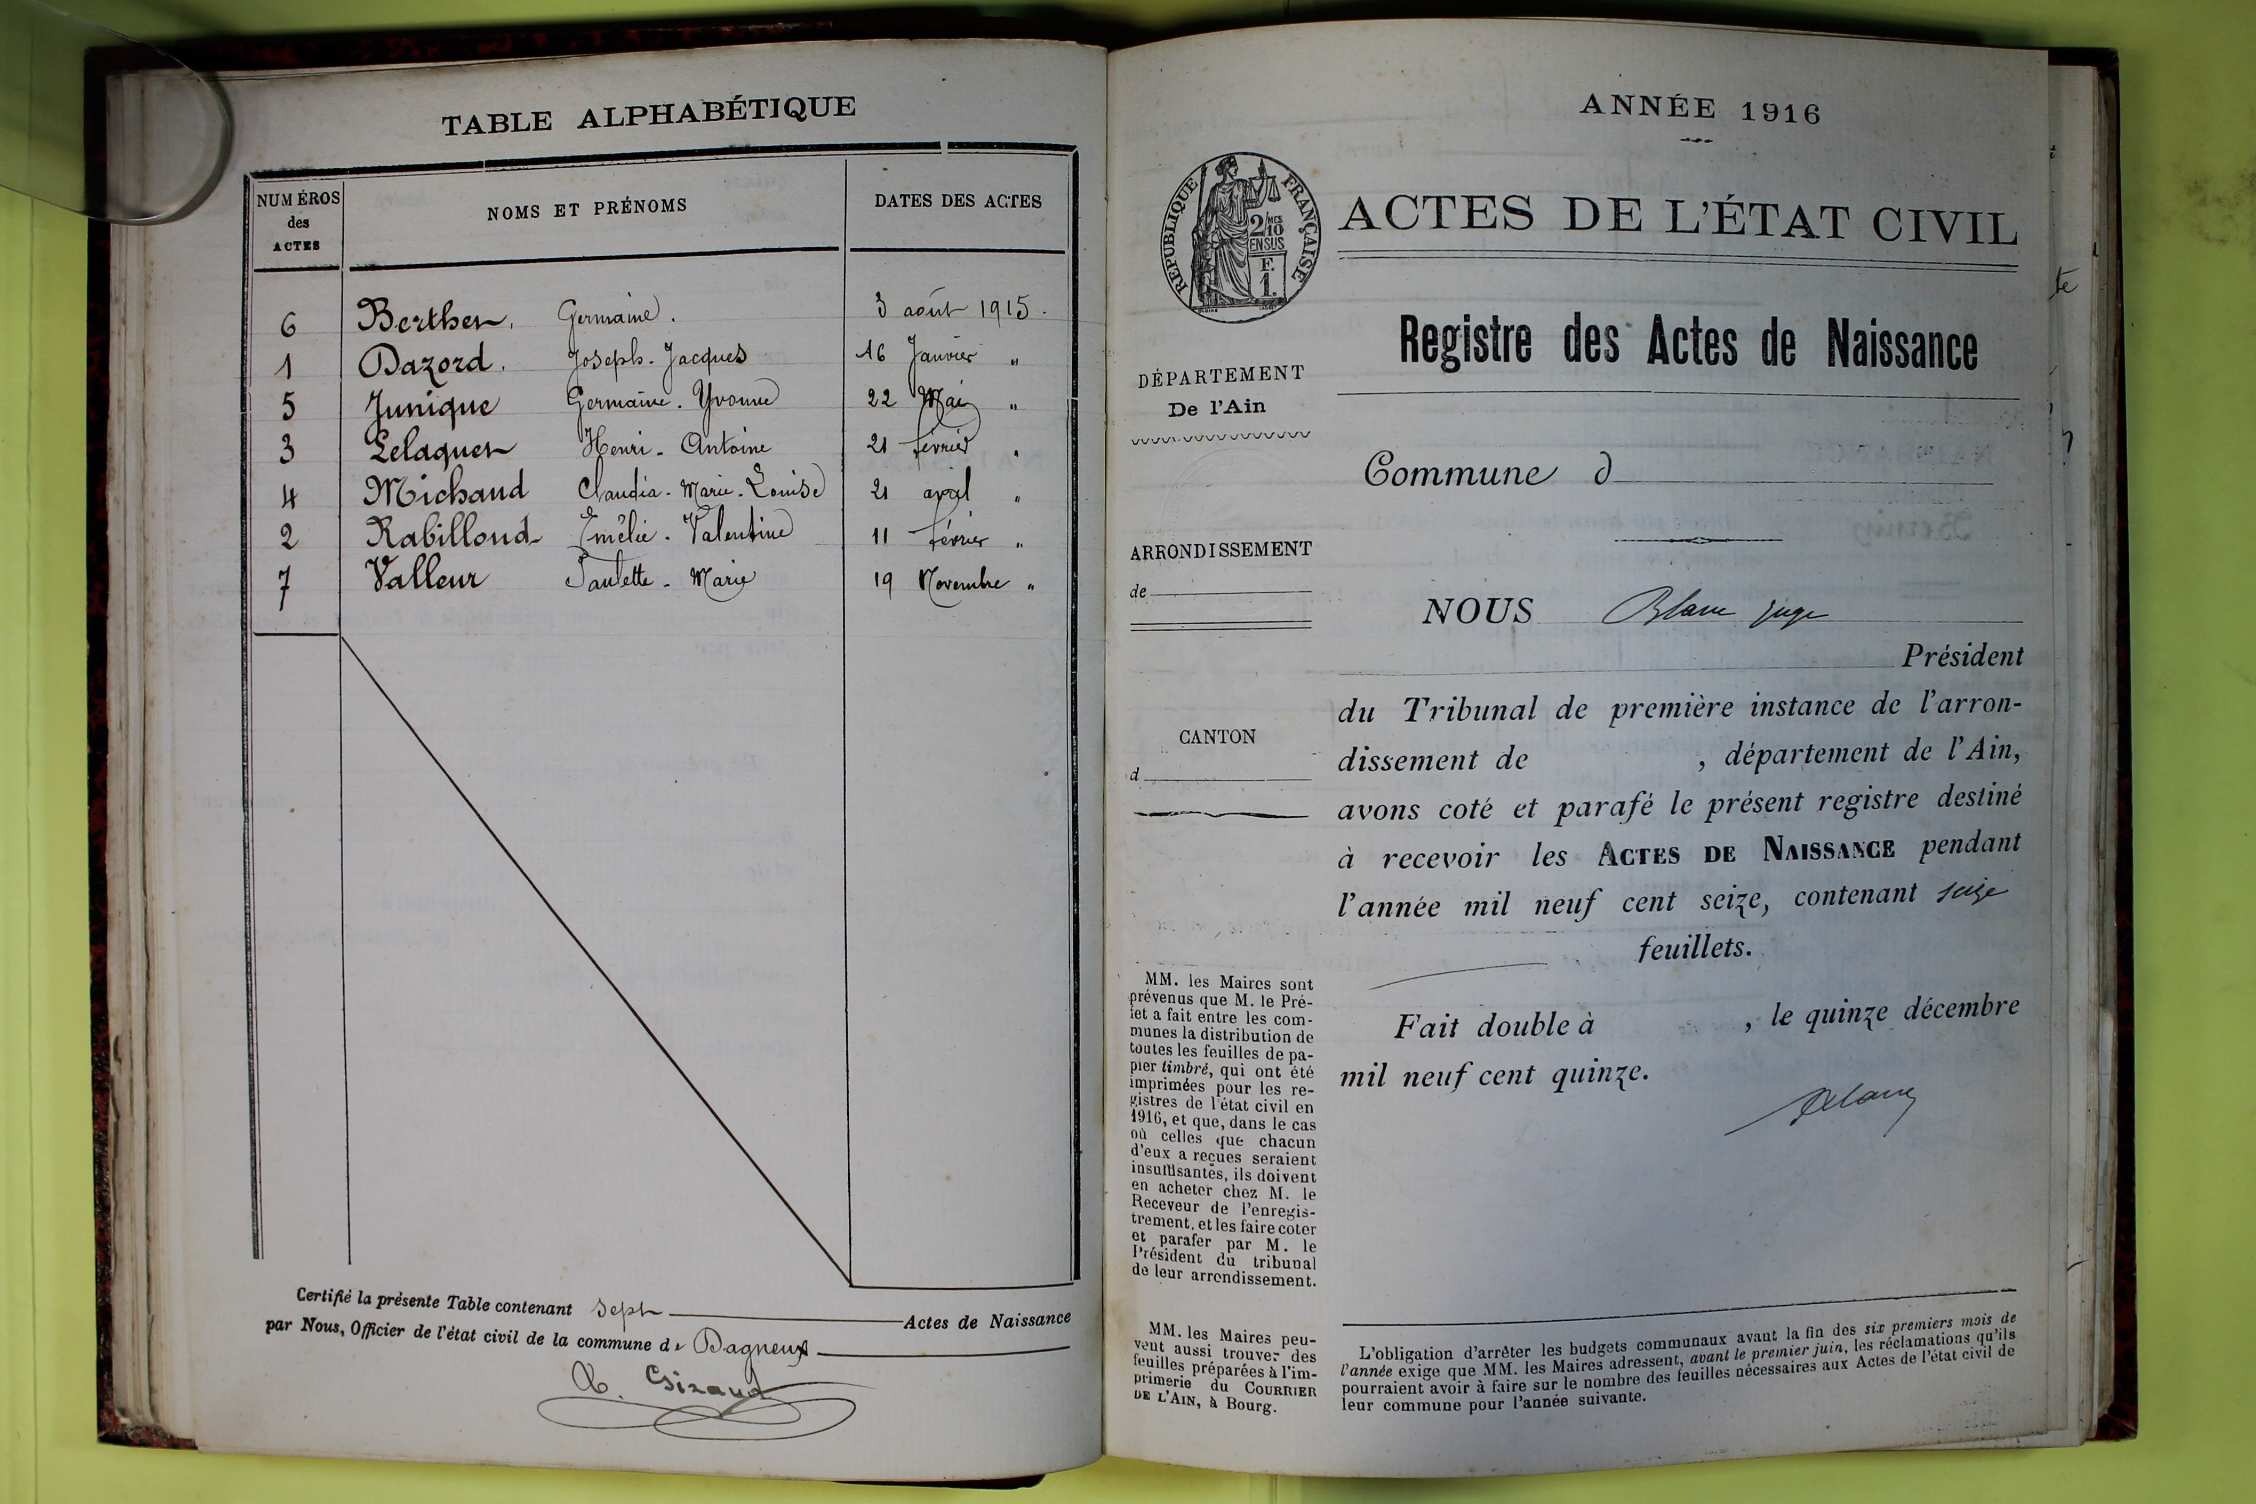 TABLE ALPHABÉTIQUE
NUMÉROS des ACTES NOMS ET PRÉNOMS DATES DES ACTES
6 Berther, Germaine. 3 août 1915.
1 Dazord, Joseph-Jacques 16 Janvier "
5 Junique Germaine-Yvonne 22 Mai "
3 Lelaquer Henri-Antoine 21 février "
4 Michaud Claudia-Marie-Louise 21 avril "
2 Rabilloud Emélie-Valentine 11 février "
7 Valleur Paulette-Marie 19 Novembre "
Certifié la présente Table contenant sept Actes de Naissance
par Nous, Officier de l'état civil de la commune de Dagneux
Giraud
ANNÉE 1916
RÉPUBLIQUE FRANÇAISE
2/10 MES
EN SUS
F.
1.
ACTES DE L'ÉTAT CIVIL
Registre des Actes de Naissance
DÉPARTEMENT
De l'Ain
Commune d
ARRONDISSEMENT
de
NOUS Blanc juge
Président
du Tribunal de première instance de l'arron-
dissement de , département de l'Ain,
avons coté et parafé le présent registre destiné
à recevoir les ACTES DE NAISSANCE pendant
l'année mil neuf cent seize, contenant seize
feuillets.
Fait double à , le quinze décembre
mil neuf cent quinze.
Blanc
CANTON
d
MM. les Maires sont
prévenus que M. le Pré-
fet a fait entre les com-
munes la distribution de
toutes les feuilles de pa-
pier timbré, qui ont été
imprimées pour les re-
gistres de l'état civil en
1916, et que, dans le cas
où celles que chacun
d'eux a reçues seraient
insuffisantes, ils doivent
en acheter chez M. le
Receveur de l'enregis-
trement, et les faire coter
et parafer par M. le
Président du tribunal
de leur arrondissement.
MM. les Maires peu-
vent aussi trouver des
feuilles préparées à l'im-
primerie du COURRIER
DE L'AIN, à Bourg.
L'obligation d'arrêter les budgets communaux avant la fin des six premiers mois de
l'année exige que MM. les Maires adressent, avant le premier juin, les réclamations qu'ils
pourraient avoir à faire sur le nombre des feuilles nécessaires aux Actes de l'état civil de
leur commune pour l'année suivante.